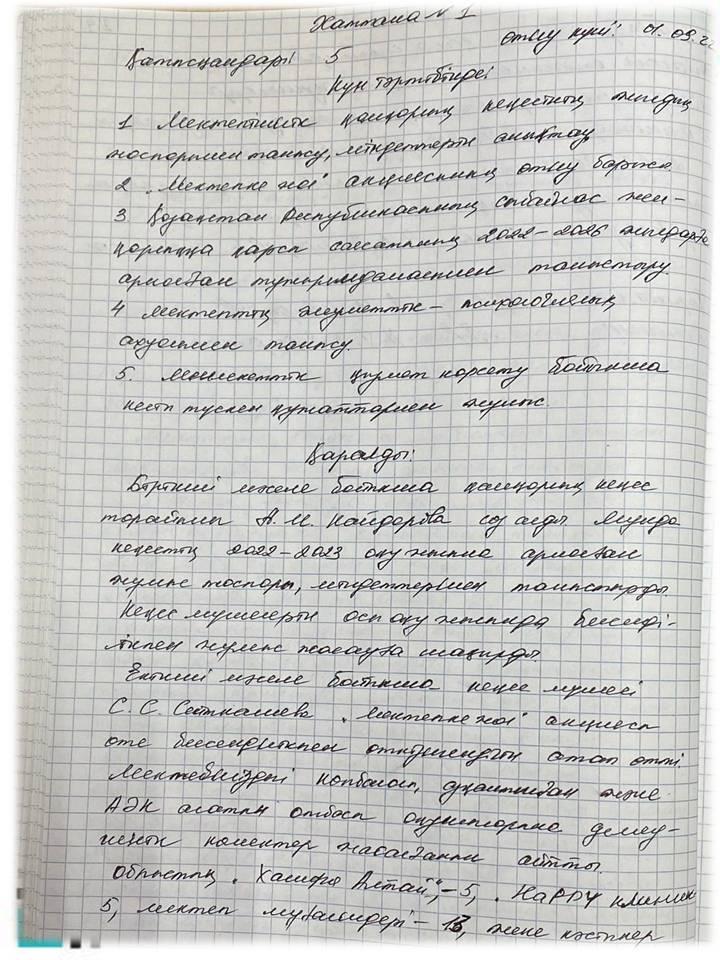 Хаттама №1
өткізу күні: 01.09.22
Қатысқандар: 5
Күн тәртібінде:
1 Мектепішілік қамқорлық кеңестің жылдық
жоспарымен танысу, міндеттерін анықтау
2 "Мектепке жол" акциясының өткізу барысы
3 Қазақстан Республикасының сыбайлас жем-
қорлыққа қарсы саясатының 2022-2026 жылдарға
арналған тұжырымдамасымен таныстыру
4 Мектептің әлеуметтік - психологиялық
ахуалымен танысу.
5. Мемлекеттік қызмет көрсету бойынша
келіп түскен құжаттармен жұмыс.
Қаралды:
Бірінші мәселе бойынша қамқорлық кеңес
төрайымы А. М. Кайдарова сөз алды Мұнда
кеңестің 2022-2023 оқу жылына арналған
жұмыс жоспары, міндеттерімен таныстырды.
Кеңес мүшелерін осы оқу жылында белсенді-
лікпен жұмыс жасауға шақырды.
Екінші мәселе бойынша кеңес мүшесі
С. С. "Мектепке жол" акциясы
өте белсенділікпен өткізілгендігін атап өтті.
Мектебіміздегі көпбалалы, және
АӘК алатын отбасы оқушыларына демеу-
шілік көмектер жасағанын айтты.
Облыстық "Халифа Алтай" - 5, "HaPPY клиник
5, мектеп мұғалімдері - 13, және кәсіпкер